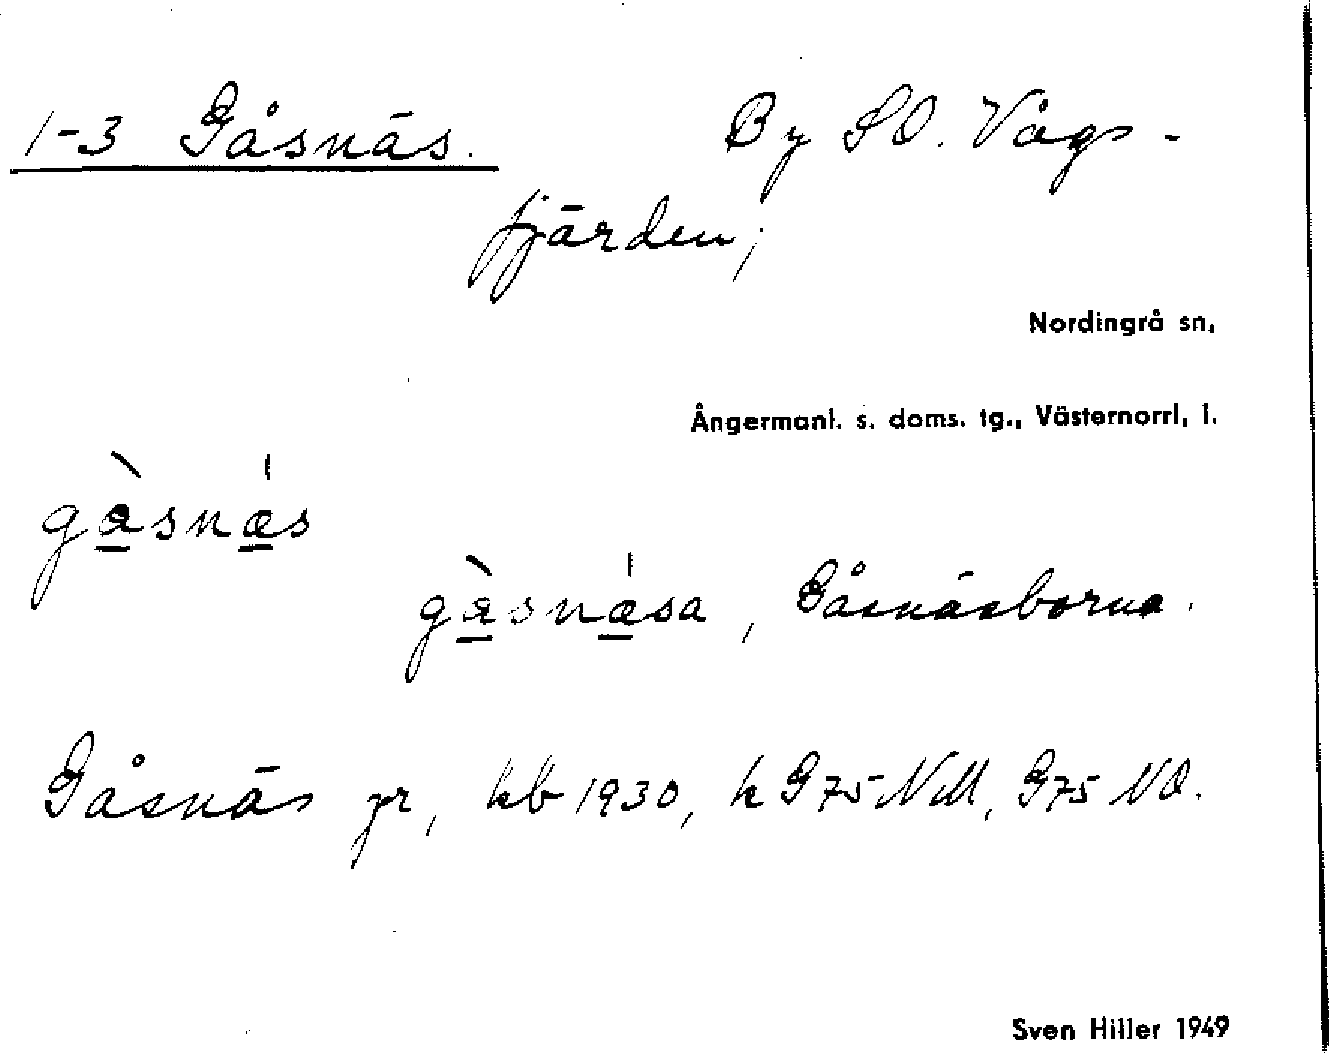 1-3 Gåsnäs. By SO. Vågs-
fjärden;
Nordingrå sn,
Ångermanl. s. doms. tg., Västernorrl, l.
gàsnæs
gàsnæsa, Gåsnäsborna.
Gåsnäs gr, kb 1930, k G75 NV, G75 NO.
Sven Hiller 1949